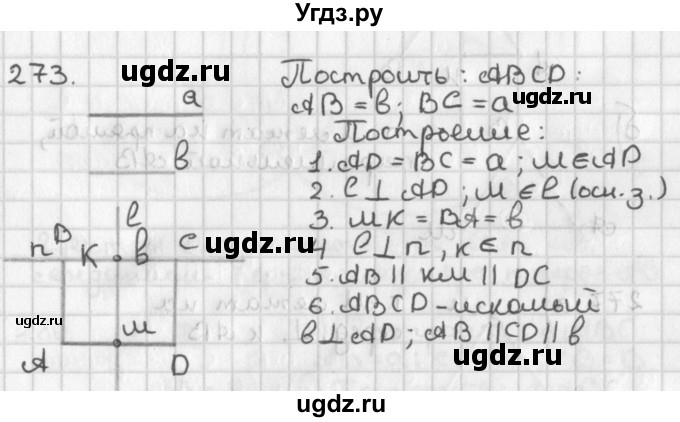 Угдз.ру
273.
ugdz.ru
a
в
Построить: ABCD:
AB = в; BC = a
Построение:
1. AD = BC = a; M ∈ AD
2. ℓ ⊥ AD; M ∈ ℓ (осн. з.)
3. MK = BA = в
4 ℓ ⊥ n, K ∈ n
5. AB || KM || DC
6. ABCD - искомый
в ⊥ AD; AB || CD || в
ugdz.ru
ℓ
n B K в C
ugdz.ru
ugdz.ru
ugdz.ru
M
A D
ugdz.ru
ugdz.ru